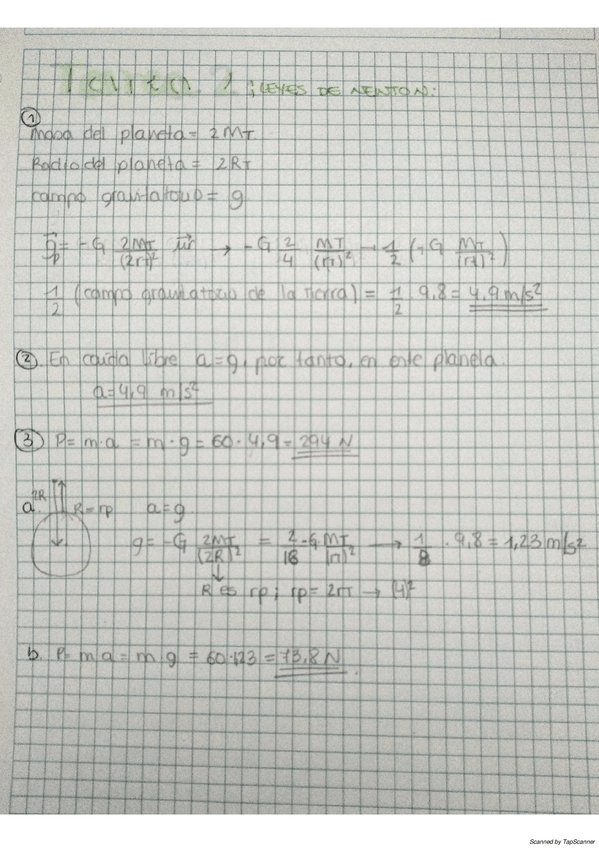 Tarea 1 : LEYES DE NEWTON:
① masa del planeta = 2MT
Radio del planeta = 2RT
campo gravitatorio = g
g⃗p = -G 2MT/(2rT)² u⃗r → -G 2/4 MT/(rT)² → 1/2 (-G MT/(rT)²)
1/2 (campo gravitatorio de la tierra) = 1/2 · 9,8 = 4,9 m/s²
② En caída libre a=g, por tanto, en este planeta
a=4,9 m/s²
③ P= m·a = m·g = 60·4,9 = 294 N
a. 2R R=rp a=g
g= -G 2MT/(2R)² = 2/16 -G MT/(rT)² → 1/8 · 9,8 = 1,23 m/s²
R es rp ; rp= 2rT → (4)²
b. P= m a = m g = 60·123 = 73,8 N
Scanned by TapScanner